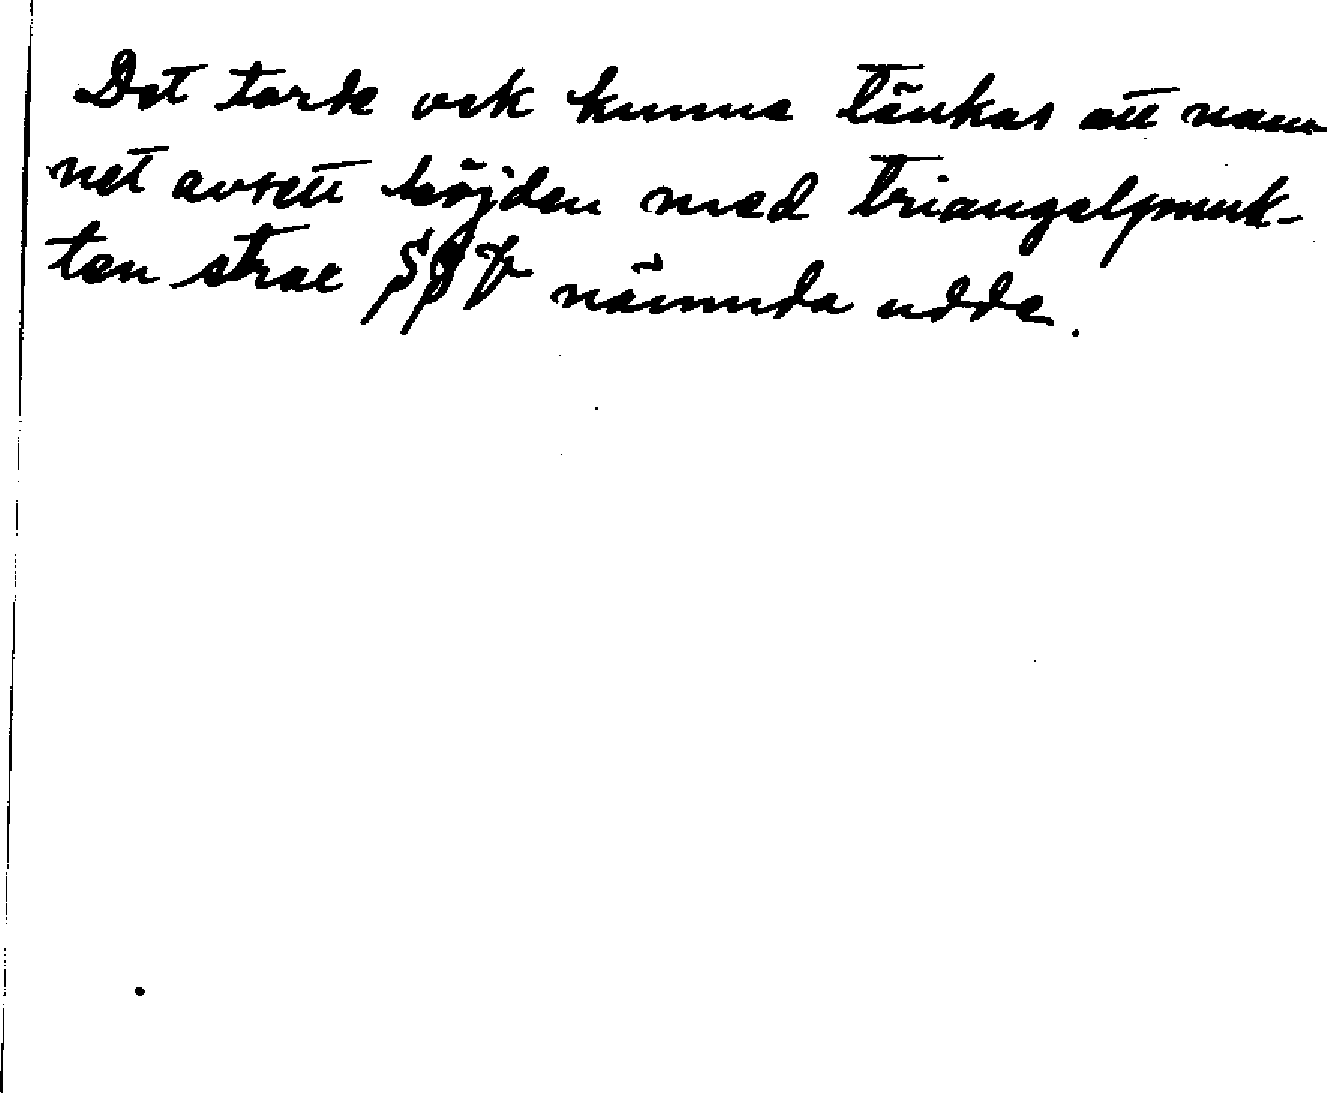 Det torde ock kunna tänkas att nam-
net avsett höjden med triangelpunk-
ten strax nämnda udde.